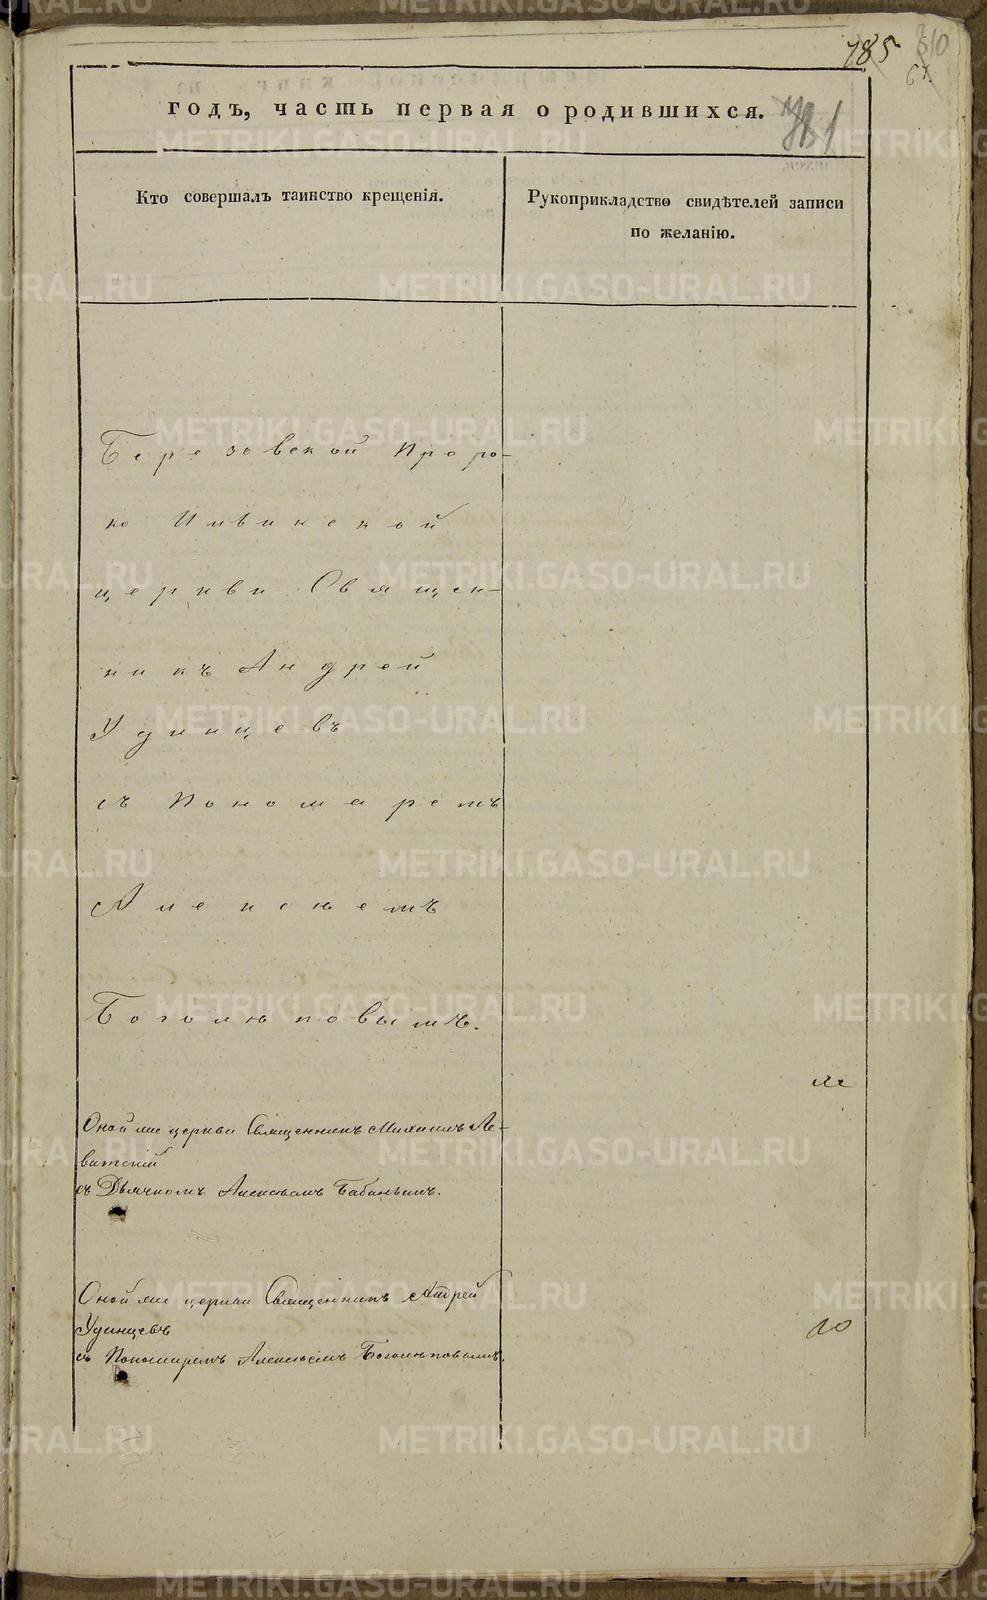 185
годъ, часть первая о родившихся.
Кто совершалъ таинство крещенія.
Рукоприкладство свидѣтелей записи
по желанію.
Березовской Проро-
ко Ильинской
церкви Священ-
никъ Андрей
Удинцевъ
съ Пономаремъ
Алексѣемъ
Боголюповымъ.
Оной же церкви Священникъ Михаилъ Ле-
витскій
съ Дьячкомъ Алексѣемъ Бабинымъ.
Оной же церкви Священникъ Андрей
Удинцевъ
съ Пономаремъ Алексѣемъ Боголюповымъ.
METRIKI.GASO-URAL.RU